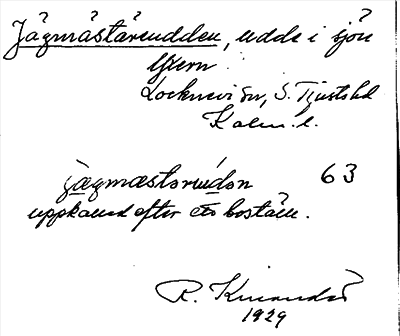 Jägmästareudden, udde i sjön
Yxern
Locknevi sn, S. Tjusts hd
Kalm. l.
jægmæstorúdən 63
uppkallad efter ett boställe.
R.
1929